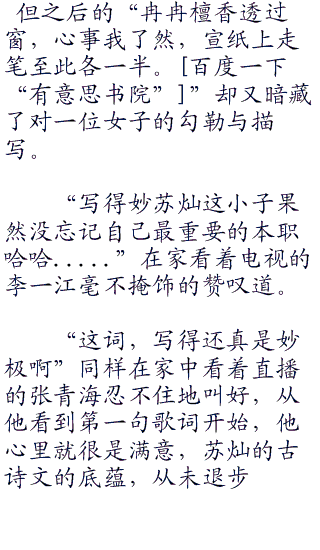 但之后的“冉冉檀香透过
窗，心事我了然，宣纸上走
笔至此各一半。[百度一下
“有意思书院”]”却又暗藏
了对一位女子的勾勒与描
写。
“写得妙苏灿这小子果
然没忘记自己最重要的本职
哈哈.....”在家看着电视的
李一江毫不掩饰的赞叹道。
“这词，写得还真是妙
极啊”同样在家中看着直播
的张青海忍不住地叫好，从
他看到第一句歌词开始，他
心里就很是满意，苏灿的古
诗文的底蕴，从未退步